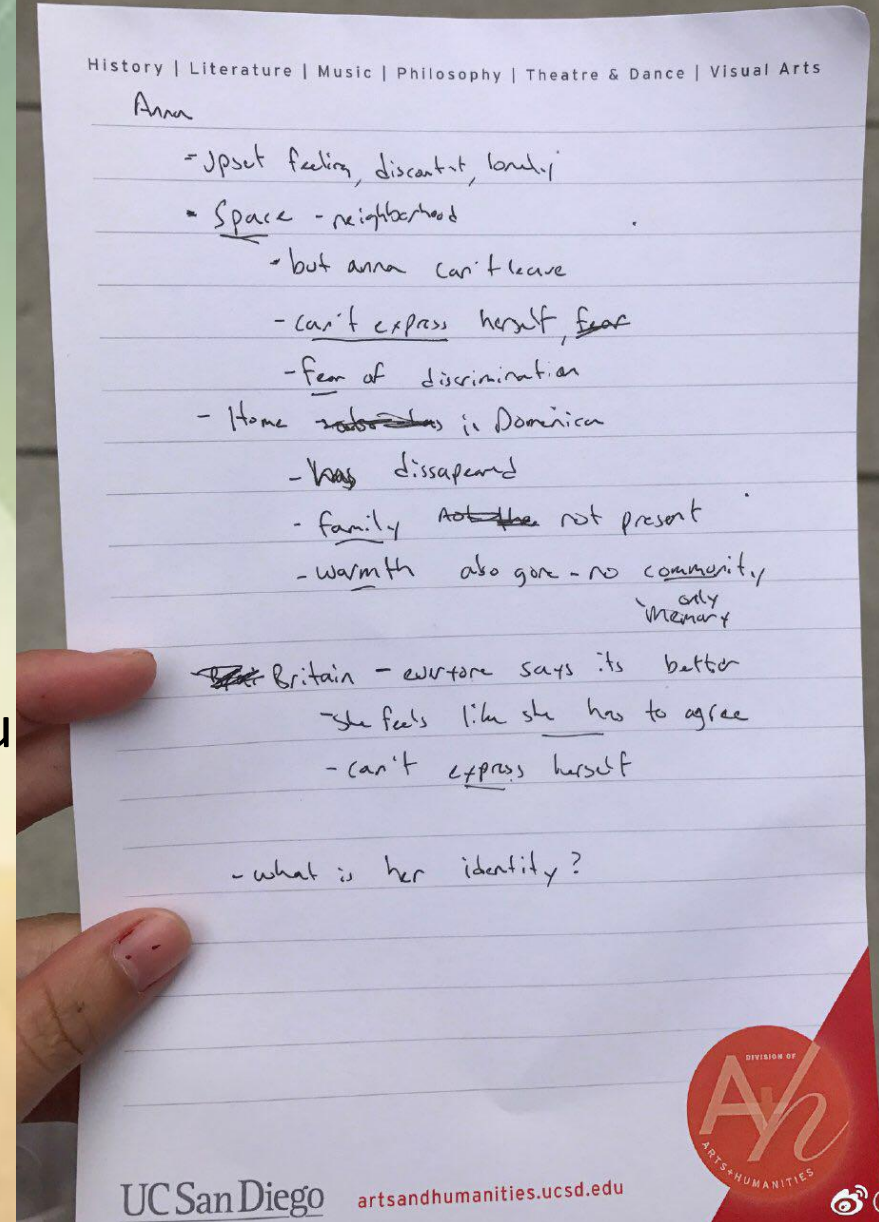 History | Literature | Music | Philosophy | Theatre & Dance | Visual Arts
Anna
- Upset feeling, discontent, lonely
- Space - neighborhood
- but anna can't leave
- can't express herself, fear
- fear of discrimination
- Home in Domenica
- has dissapeared
- family not the not present
- warmth also gone - no community
only
memory
Britain - everyone says its better
- she feels like she has to agree
- can't express herself
u
- what is her identity?
DIVISION OF
A+h
ARTS+HUMANITIES
UC San Diego artsandhumanities.ucsd.edu